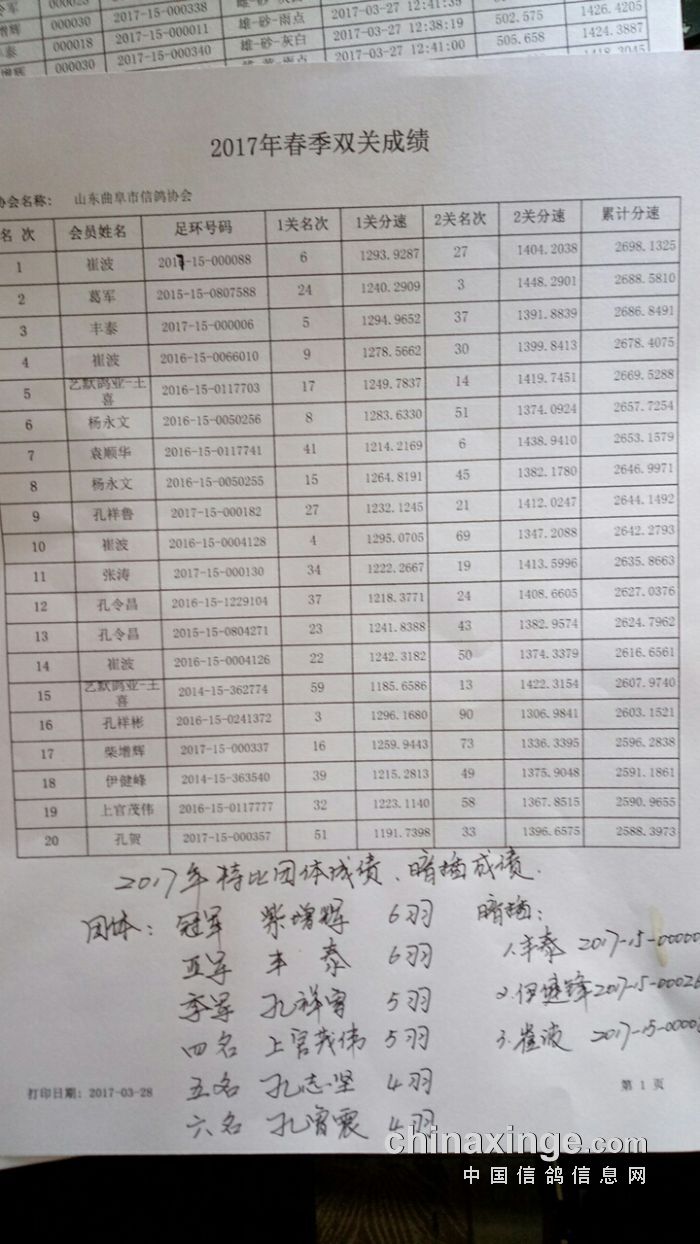 000338 2017-15-000338 雄-砂-雨点 2017-03-27 12:41:35 1426.4205
增辉 000030 2017-15-000011 2017-03-27 12:38:19 502.575 1424.3887
丰泰 000018 2017-15-000340 雄-砂-灰白 2017-03-27 12:41:00 505.658
增辉 000030
2017年春季双关成绩
协会名称: 山东曲阜市信鸽协会
名 次 会员姓名 足环号码 1关名次 1关分速 2关名次 2关分速 累计分速
1 崔波 2017-15-000088 6 1293.9287 27 1404.2038 2698.1325
2 葛军 2015-15-0807588 24 1240.2909 3 1448.2901 2688.5810
3 丰泰 2017-15-000006 5 1294.9652 37 1391.8839 2686.8491
4 崔波 2016-15-0066010 9 1278.5662 30 1399.8413 2678.4075
5 艺默鸽业-王喜 2016-15-0117703 17 1249.7837 14 1419.7451 2669.5288
6 杨永文 2016-15-0050256 8 1283.6330 51 1374.0924 2657.7254
7 袁顺华 2016-15-0117741 41 1214.2169 6 1438.9410 2653.1579
8 杨永文 2016-15-0050255 15 1264.8191 45 1382.1780 2646.9971
9 孔祥鲁 2017-15-000182 27 1232.1245 21 1412.0247 2644.1492
10 崔波 2016-15-0004128 4 1295.0705 69 1347.2088 2642.2793
11 张涛 2017-15-000130 34 1222.2667 19 1413.5996 2635.8663
12 孔令昌 2016-15-1229104 37 1218.3771 24 1408.6605 2627.0376
13 孔令昌 2015-15-0804271 23 1241.8388 43 1382.9574 2624.7962
14 崔波 2016-15-0004126 22 1242.3182 50 1374.3379 2616.6561
15 艺默鸽业-王喜 2014-15-362774 59 1185.6586 13 1422.3154 2607.9740
16 孔祥彬 2016-15-0241372 3 1296.1680 90 1306.9841 2603.1521
17 柴增辉 2017-15-000337 16 1259.9443 73 1336.3395 2596.2838
18 伊健峰 2014-15-363540 39 1215.2813 49 1375.9048 2591.1861
19 上官茂伟 2016-15-0117777 32 1223.1140 58 1367.8515 2590.9655
20 孔贺 2017-15-000357 51 1191.7398 33 1396.6575 2588.3973
2017年特比团体成绩、暗插成绩.
团体: 冠军 柴增辉 6羽 暗插:
亚军 丰泰 6羽 1.丰泰 2017-15-00000
季军 孔祥 5羽 2.伊健锋 2017-15-00026
四名 上官茂伟 5羽 3.崔波 2017-15-0000
五名 孔志坚 4羽
六名 孔 震 4羽
打印日期: 2017-03-28 第 1 页
chinaxinge.com
中国信鸽信息网